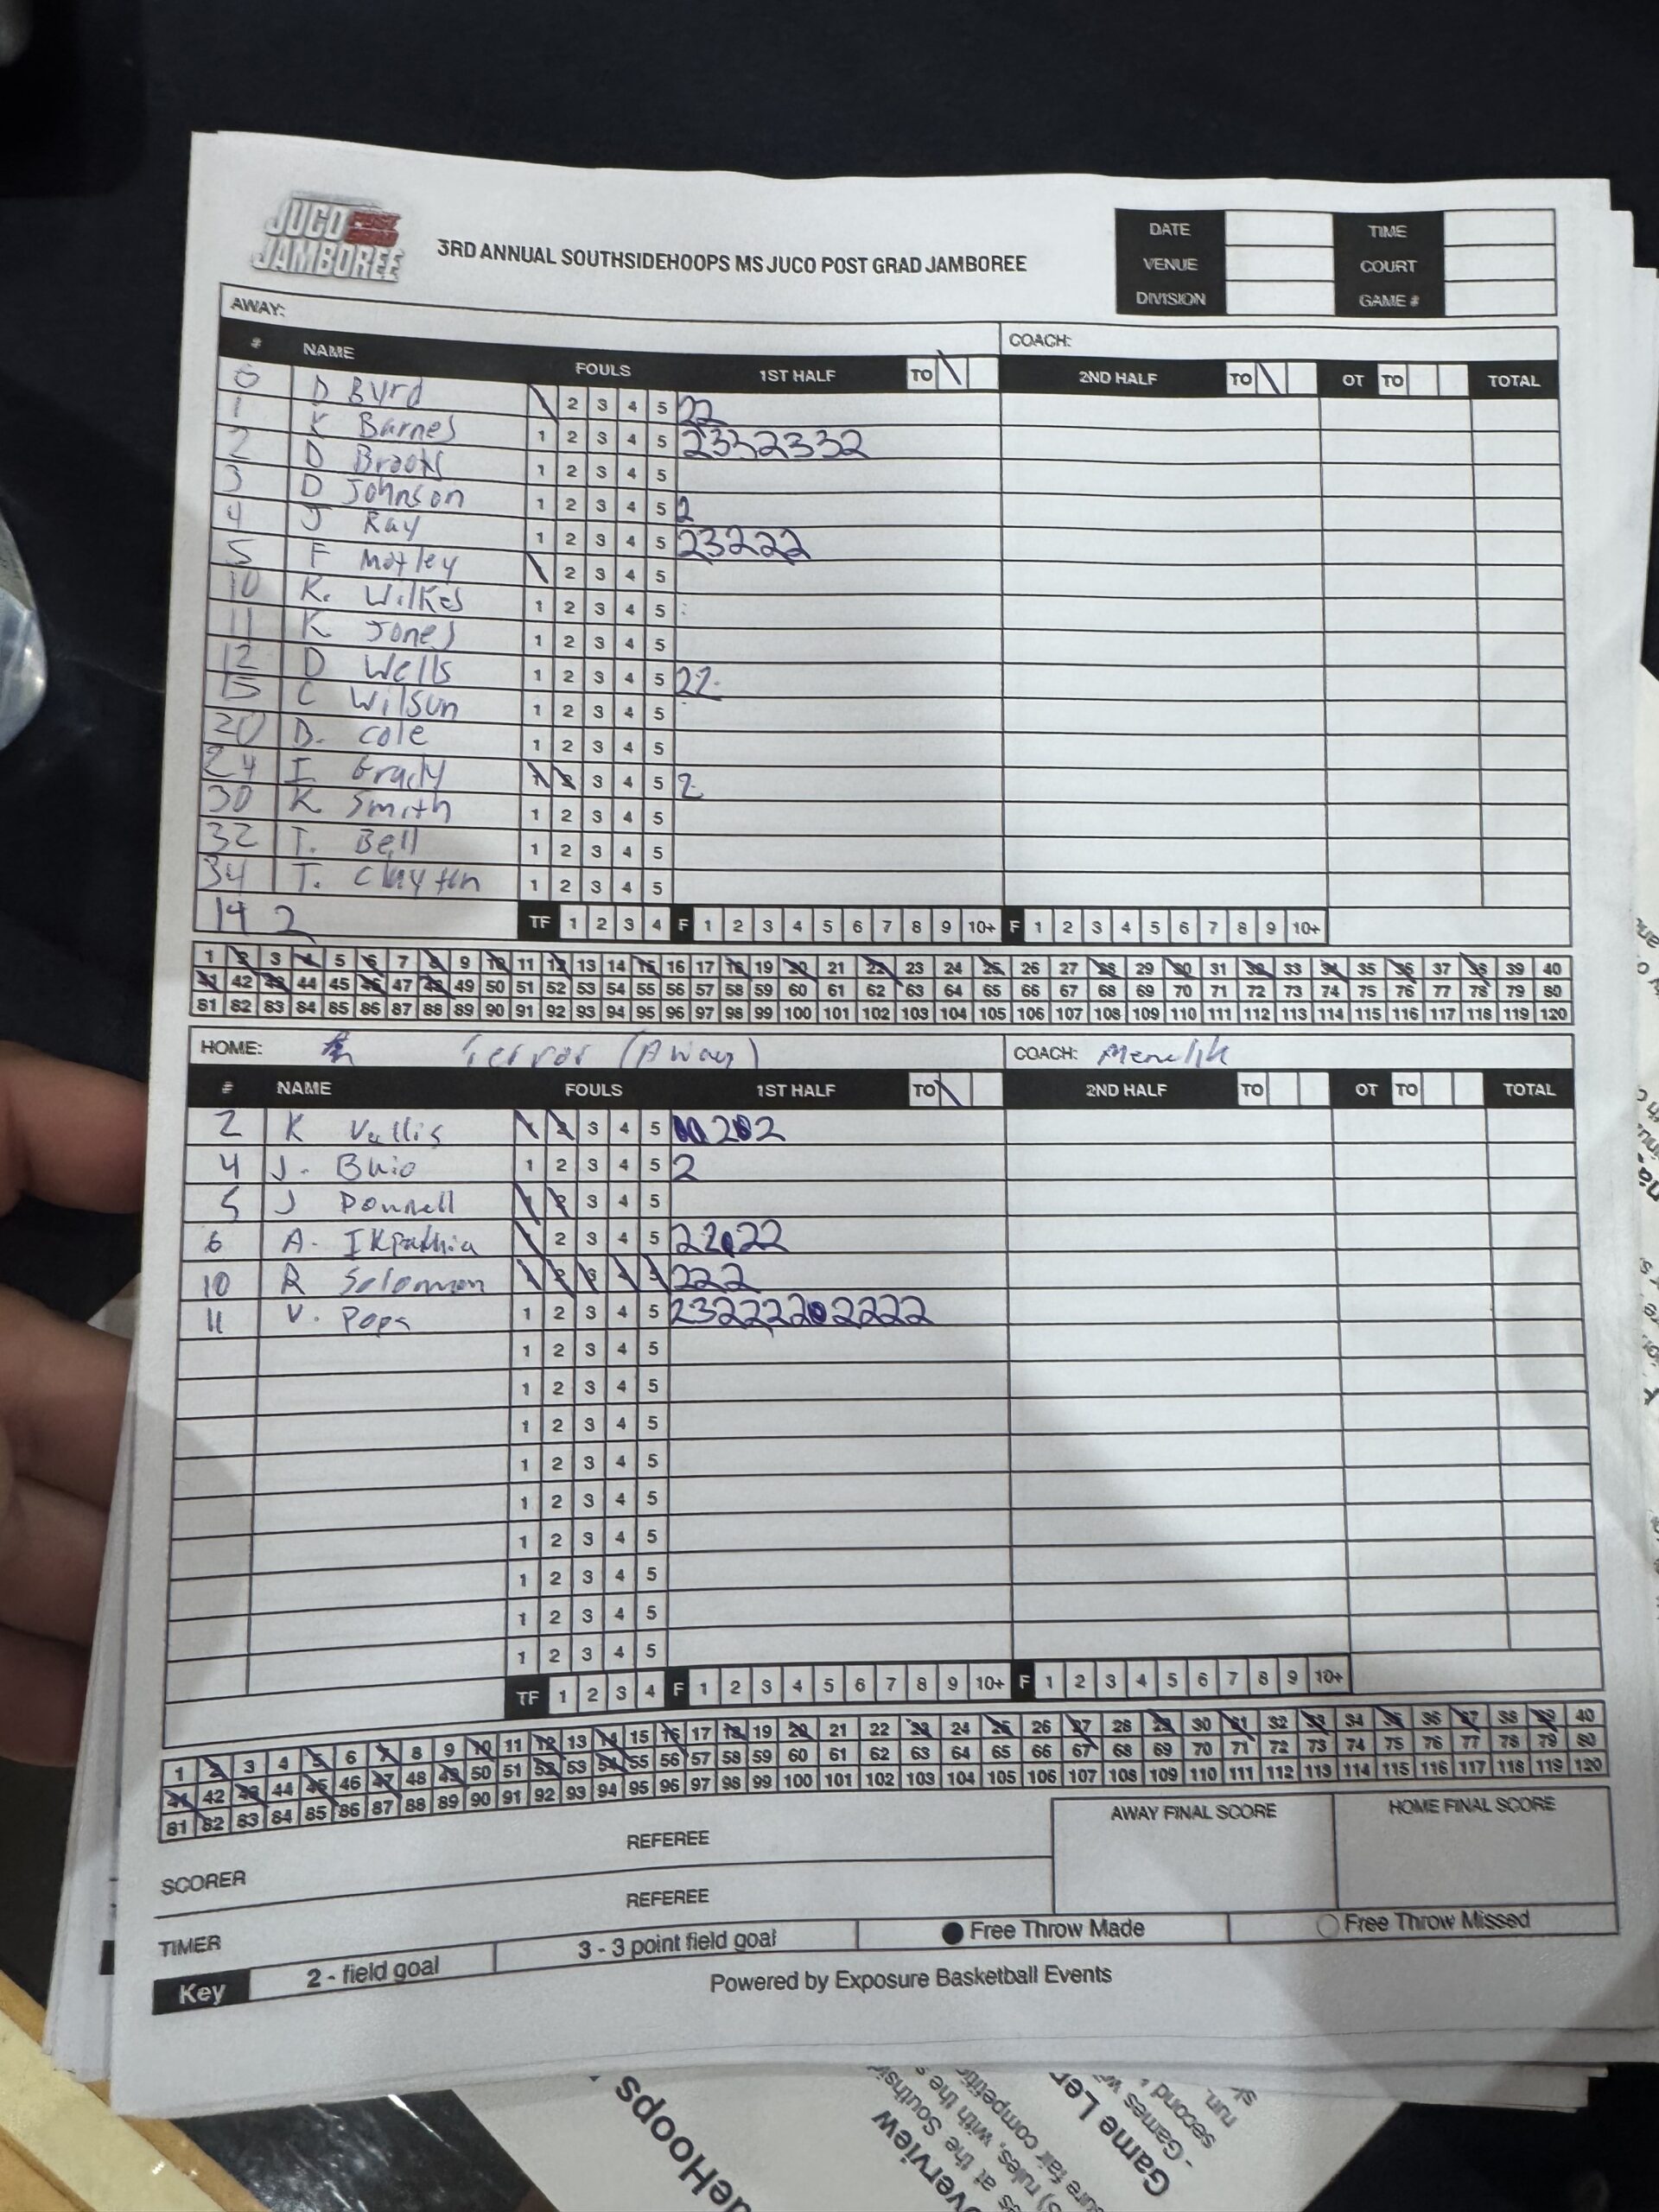 JUCO POST GRAD JAMBOREE
3RD ANNUAL SOUTHSIDEHOOPS MS JUCO POST GRAD JAMBOREE
DATE TIME
VENUE COURT
DIVISION GAME #
AWAY: COACH:
# NAME FOULS 1ST HALF TO 2ND HALF TO OT TO TOTAL
0 D Byrd 1 2 3 4 5 22
1 K Barnes 1 2 3 4 5 2332332
2 D Brooks 1 2 3 4 5
3 D Johnson 1 2 3 4 5 2
4 J Ray 1 2 3 4 5 23222
5 F Motley 1 2 3 4 5
10 K. Wilkes 1 2 3 4 5
11 K Jones 1 2 3 4 5
12 D Wells 1 2 3 4 5 22
15 C Wilson 1 2 3 4 5
20 B. Cole 1 2 3 4 5
24 I Grady 1 2 3 4 5 2
30 K Smith 1 2 3 4 5
32 T. Bell 1 2 3 4 5
34 T. Clayton 1 2 3 4 5
14 2 TF 1 2 3 4 F 1 2 3 4 5 6 7 8 9 10+ F 1 2 3 4 5 6 7 8 9 10+
1 2 3 4 5 6 7 8 9 10 11 12 13 14 15 16 17 18 19 20 21 22 23 24 25 26 27 28 29 30 31 32 33 34 35 36 37 38 39 40
41 42 43 44 45 46 47 48 49 50 51 52 53 54 55 56 57 58 59 60 61 62 63 64 65 66 67 68 69 70 71 72 73 74 75 76 77 78 79 80
81 82 83 84 85 86 87 88 89 90 91 92 93 94 95 96 97 98 99 100 101 102 103 104 105 106 107 108 109 110 111 112 113 114 115 116 117 118 119 120
HOME: Terror (Away) COACH: Menelik
# NAME FOULS 1ST HALF TO 2ND HALF TO OT TO TOTAL
2 K Vallis 1 2 3 4 5 ●●2●2
4 J. 1 2 3 4 5 2
5 J 1 2 3 4 5
6 A. 1 2 3 4 5 22●22
10 R Solomon 1 2 3 4 5 222
11 V. Pops 1 2 3 4 5 232222●2222
1 2 3 4 5
1 2 3 4 5
1 2 3 4 5
1 2 3 4 5
1 2 3 4 5
1 2 3 4 5
1 2 3 4 5
1 2 3 4 5
1 2 3 4 5
TF 1 2 3 4 F 1 2 3 4 5 6 7 8 9 10+ F 1 2 3 4 5 6 7 8 9 10+
1 2 3 4 5 6 7 8 9 10 11 12 13 14 15 16 17 18 19 20 21 22 23 24 25 26 27 28 29 30 31 32 33 34 35 36 37 38 39 40
41 42 43 44 45 46 47 48 49 50 51 52 53 54 55 56 57 58 59 60 61 62 63 64 65 66 67 68 69 70 71 72 73 74 75 76 77 78 79 80
81 82 83 84 85 86 87 88 89 90 91 92 93 94 95 96 97 98 99 100 101 102 103 104 105 106 107 108 109 110 111 112 113 114 115 116 117 118 119 120
AWAY FINAL SCORE HOME FINAL SCORE
SCORER REFEREE
TIMER REFEREE
Key 2 - field goal 3 - 3 point field goal ● Free Throw Made ○ Free Throw Missed
Powered by Exposure Basketball Events